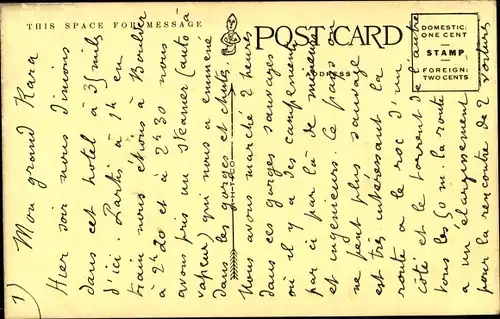 THIS SPACE FOR MESSAGE
POST CARD
DOMESTIC:
ONE CENT
STAMP
FOREIGN:
TWO CENTS
1)
Mon grand Kara
Hier soir nous dinions
dans cet hotel à 35 mils
d'ici. Partis à 1h en
train nous étions à Boulder
à 2h20 et à 2h30 nous
avons pris un steamer (auto à
vapeur) qui nous a emmené
dans les gorges et chutes.
Nous avons marché 2 heures
dans ces gorges sauvages
où il y a des campements
par ci par là de mineurs
et ingenieurs. Le pays on
ne peut plus sauvage
est très intéressant la
route a le roc d'un
côté et le torrent de l'autre
tous les 50 m. la route
a un élargissement
pour la rencontre de 2 voitures